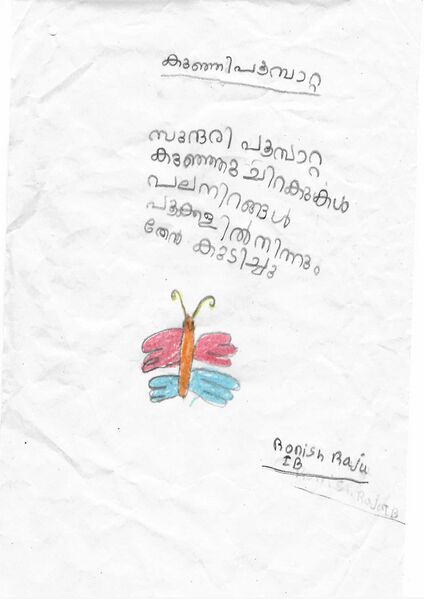 കുഞ്ഞിപൂമ്പാറ്റ
സുന്ദരി പൂമ്പാറ്റ
കുഞ്ഞു ചിറകുകൾ
പലനിറങ്ങൾ
പൂക്കളിൽനിന്നും
തേൻ കുടിച്ചു
Bonish Raju
IB
Raju IB